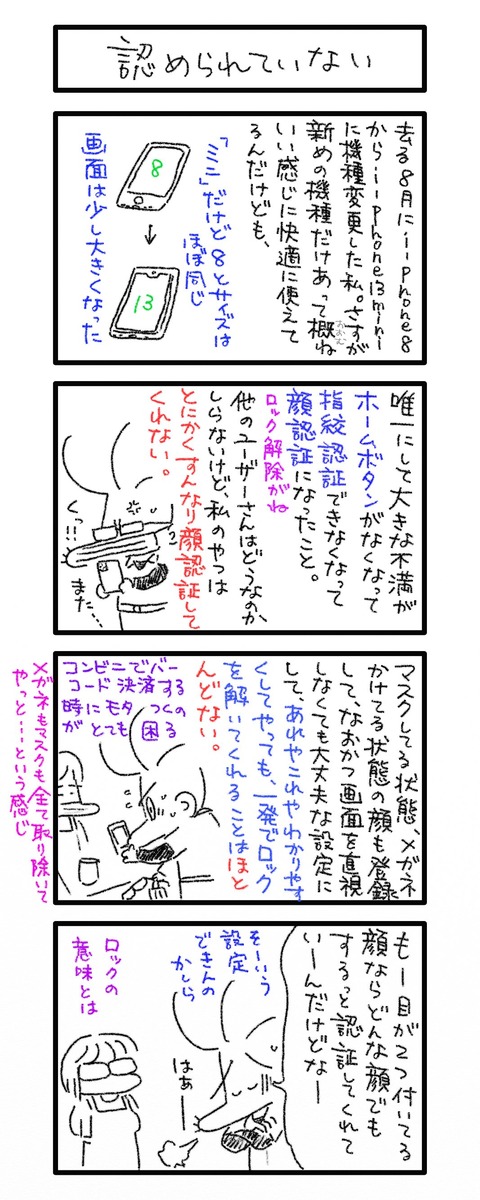 認められていない
去る8月にiPhone8
からiPhone13mini
に機種変更した私。さすが
新めの機種だけあって概ね
おおむ
いい感じに快適に使えて
るんだけども、
8
13
「ミニ」だけど8とサイズは
ほぼ同じ
画面は少し大きくなった
唯一にして大きな不満が
ホームボタンがなくなって
指紋認証できなくなって
顔認証になったこと。
ロック解除がね
他のユーザーさんはどうなのか
しらないけど、私のやつは
とにかくすんなり顔認証して
くれない。
くっ!!
また…
マスクしてる状態、メガネ
かけてる状態の顔も登録
して、なおかつ画面を直視
しなくても大丈夫な設定に
して、あれやこれやわかりやす
くしてやっても、一発でロック
を解いてくれることはほと
んどない。
コンビニでバー
コード決済する
時にモタつくの
がとても困る
メガネもマスクも全て取り除いて
やっと…という感じ
もー目が2つ付いてる
顔ならどんな顔でも
するっと認証してくれて
いーんだけどなー
そーいう
設定
できんの
かしら
はぁー
ロックの
意味とは